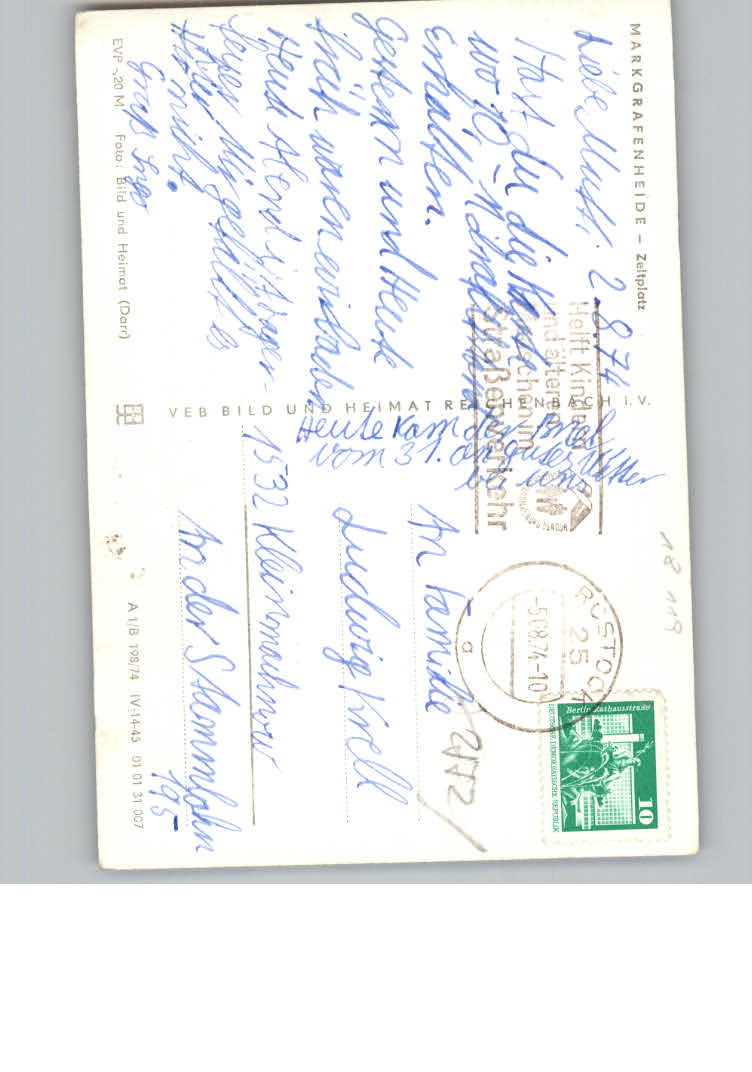 MARKGRAFENHEIDE – Zeltplatz
Liebe Mutti. 2.8.74
Hast du die Karte
wo 10,- M drauf
erhalten.
Gestern und Heute
früh waren wir baden
Heute Abend ist Lager-
feuer. Mir gefällt es
hier
nicht.
Gruß Ingo
EVP -,20 M Foto: Bild und Heimat (Darr)
VEB BILD UND HEIMAT REICHENBACH I. V.
Heute kam der Brief
vom 31. an
bei uns
Helft Kindern
und älteren
Menschen im
Straßenverkehr
ROSTOCK 1
25
-5.08.74-10
a
Berlin, Rathausstraße
DEUTSCHE DEMOKRATISCHE REPUBLIK
10
18 119
An Familie
Ludwig Knell
1532 Kleinmachnow
An der Stammbahn
195
A 1/B 198/74 IV-14-45 01 01 31 007